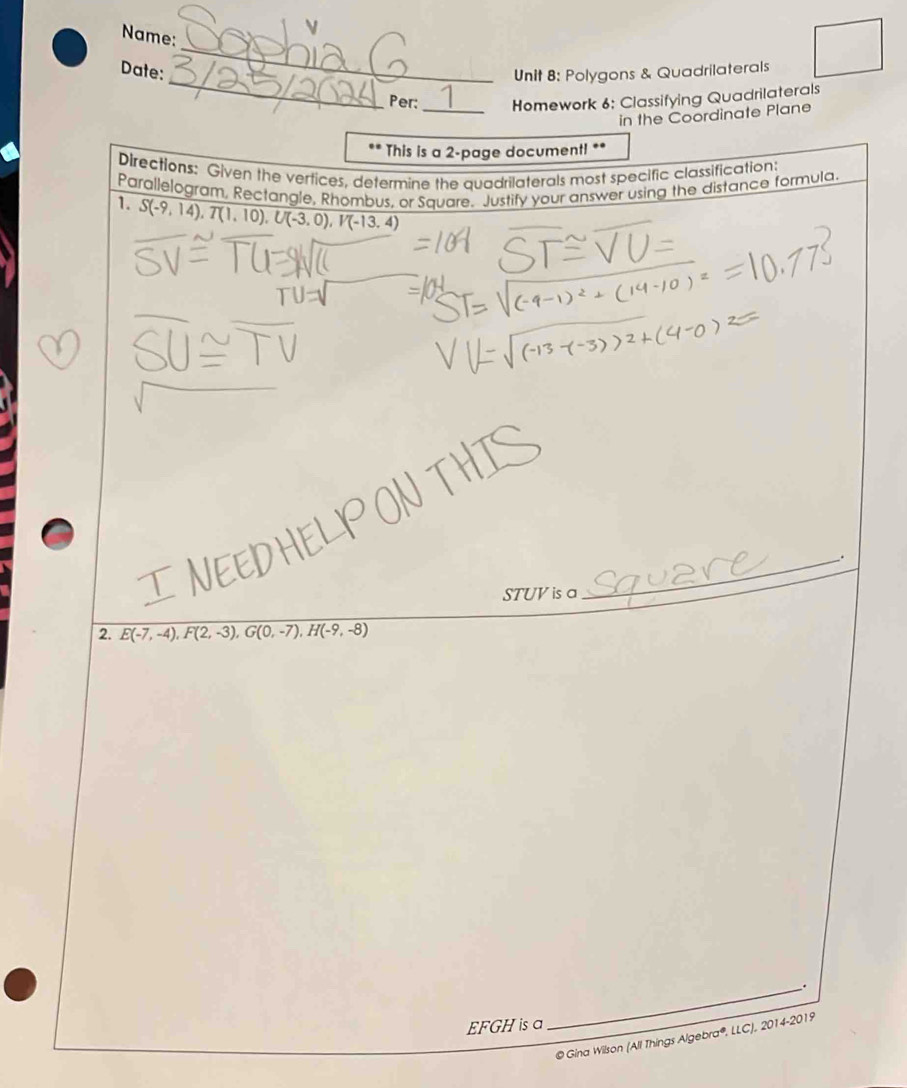 Name: Sophia G
Date: 3/25/2024 Per: 1
Unit 8: Polygons & Quadrilaterals
Homework 6: Classifying Quadrilaterals
in the Coordinate Plane
** This is a 2-page document! **
Directions: Given the vertices, determine the quadrilaterals most specific classification:
Parallelogram, Rectangle, Rhombus, or Square. Justify your answer using the distance formula.
1. S(-9, 14), T(1, 10), U(-3, 0), V(-13, 4)
SV ≅ TU = √ = 104
TU = √ = 104
ST ≅ VU =
ST = √(-9-1)² + (14-10)² = 10.773
SU ≅ TV
VU = √(-13-(-3))² + (4-0)² =
√
I NEED HELP ON THIS
STUV is a square.
2. E(-7, -4), F(2, -3), G(0, -7), H(-9, -8)
EFGH is a ______.
© Gina Wilson (All Things Algebra®, LLC), 2014-2019